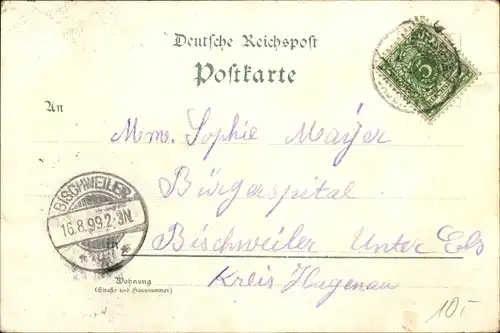 Deutsche Reichspost
Postkarte
An
Mme. Sophie Mayer
Bürgerspital
in Bischweiler Unter Els
Kreis Hagenau
Wohnung
(Straße und Hausnummer)
BISCHWEILER
16.8.99.2-3N
5
10.-